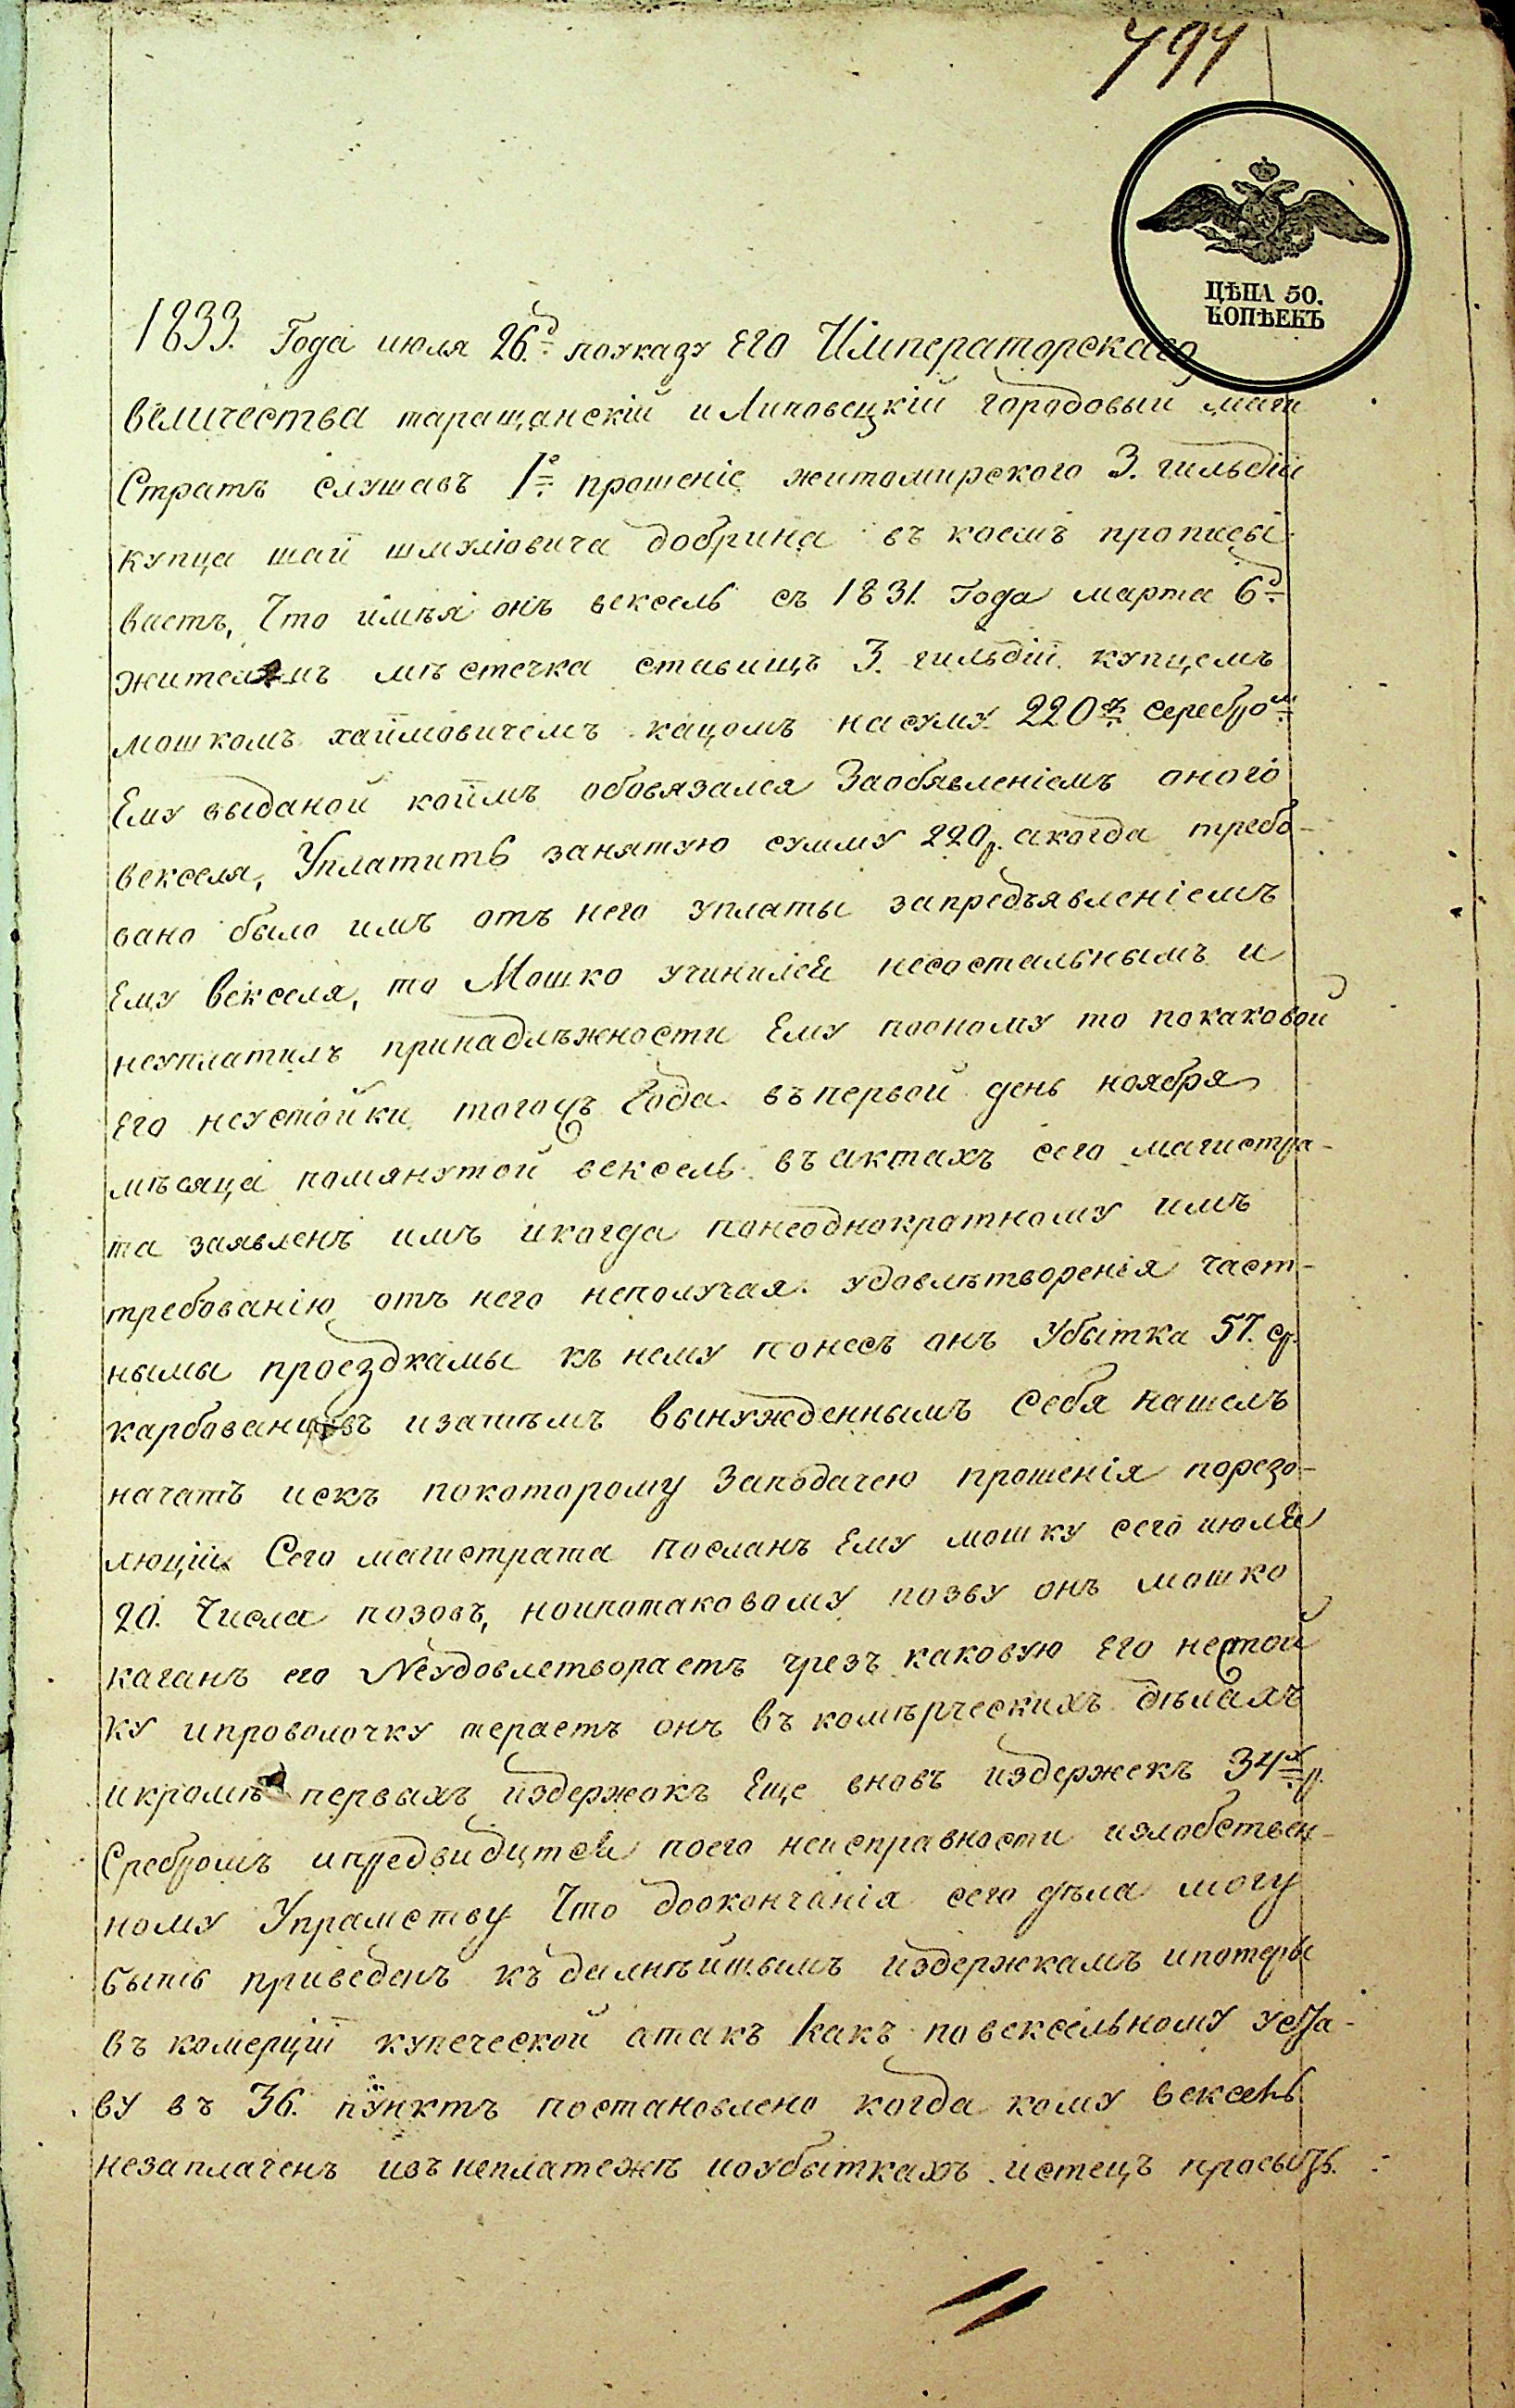 494
ЦѢНА 50.
КОПѢЕКЪ
1833. Года июля 26.д поуказу Его Императорскаго
величества таращанскій и Липовецкій городовый маги
Стратъ слушавъ 1е прошеніе житомирского 3. гильдіи
купца шаи шмулiовича добрина въ коемъ прописы
ваетъ, Что имѣя онъ вексель съ 1831. Года марта 6д
жителемъ мѣстечка ставищъ 3. гильдіи купцемъ
мошкомъ хаимовичемъ кацомъ насуму 220 серебром
Ему выданой коимъ обовязался Заобявленіемъ оного
векселя, Уплатить занятую сумму 220р. акогда требо-
вано было имъ отъ него уплаты запредъявленіемъ
Ему векселя, то Мошко учинился несостальнымъ и
неуплатилъ принадлѣжности Ему пооному то покаковой
Его неустойки тогожъ Года въ первой день ноября
мѣсяца помянутой вексель въ актахъ сего магистра-
та заявленъ имъ икогда понеоднократному имъ
требованію отъ него неполучая удовлѣтворенія част-
нымы проездкамы къ нему понесъ онъ Убытка 57. ср.
карбованцовъ изатѣмъ вынужденнымъ Себя нашелъ
начать искъ покоторому Заподачею прошенія порезо-
люціи Сего магистрата посланъ Ему мошку сего июля
20. Числа позовъ, ноипотаковому позву онъ мошко
каганъ его Неудовлетвораетъ чрезъ каковую Его нестой
ку ипроволочку тераетъ онъ въ комѣрческихъ дѣлахъ
икромѣ первыхъ издержокъ Еще вновъ издержекъ 34х р.
Сребромъ ипредвидится поего неисправности излобствен-
ному Упрамству Что доокончанія сего дѣла могу
быть приведенъ къ далнѣйшымъ издержкамъ ипотеры
въ комерціи купеческой атакъ какъ повексельному уста-
ву въ 36. пунктъ постановлено когда кому вексель
незаплаченъ ивъ неплатежѣ иоубыткахъ истецъ просыть